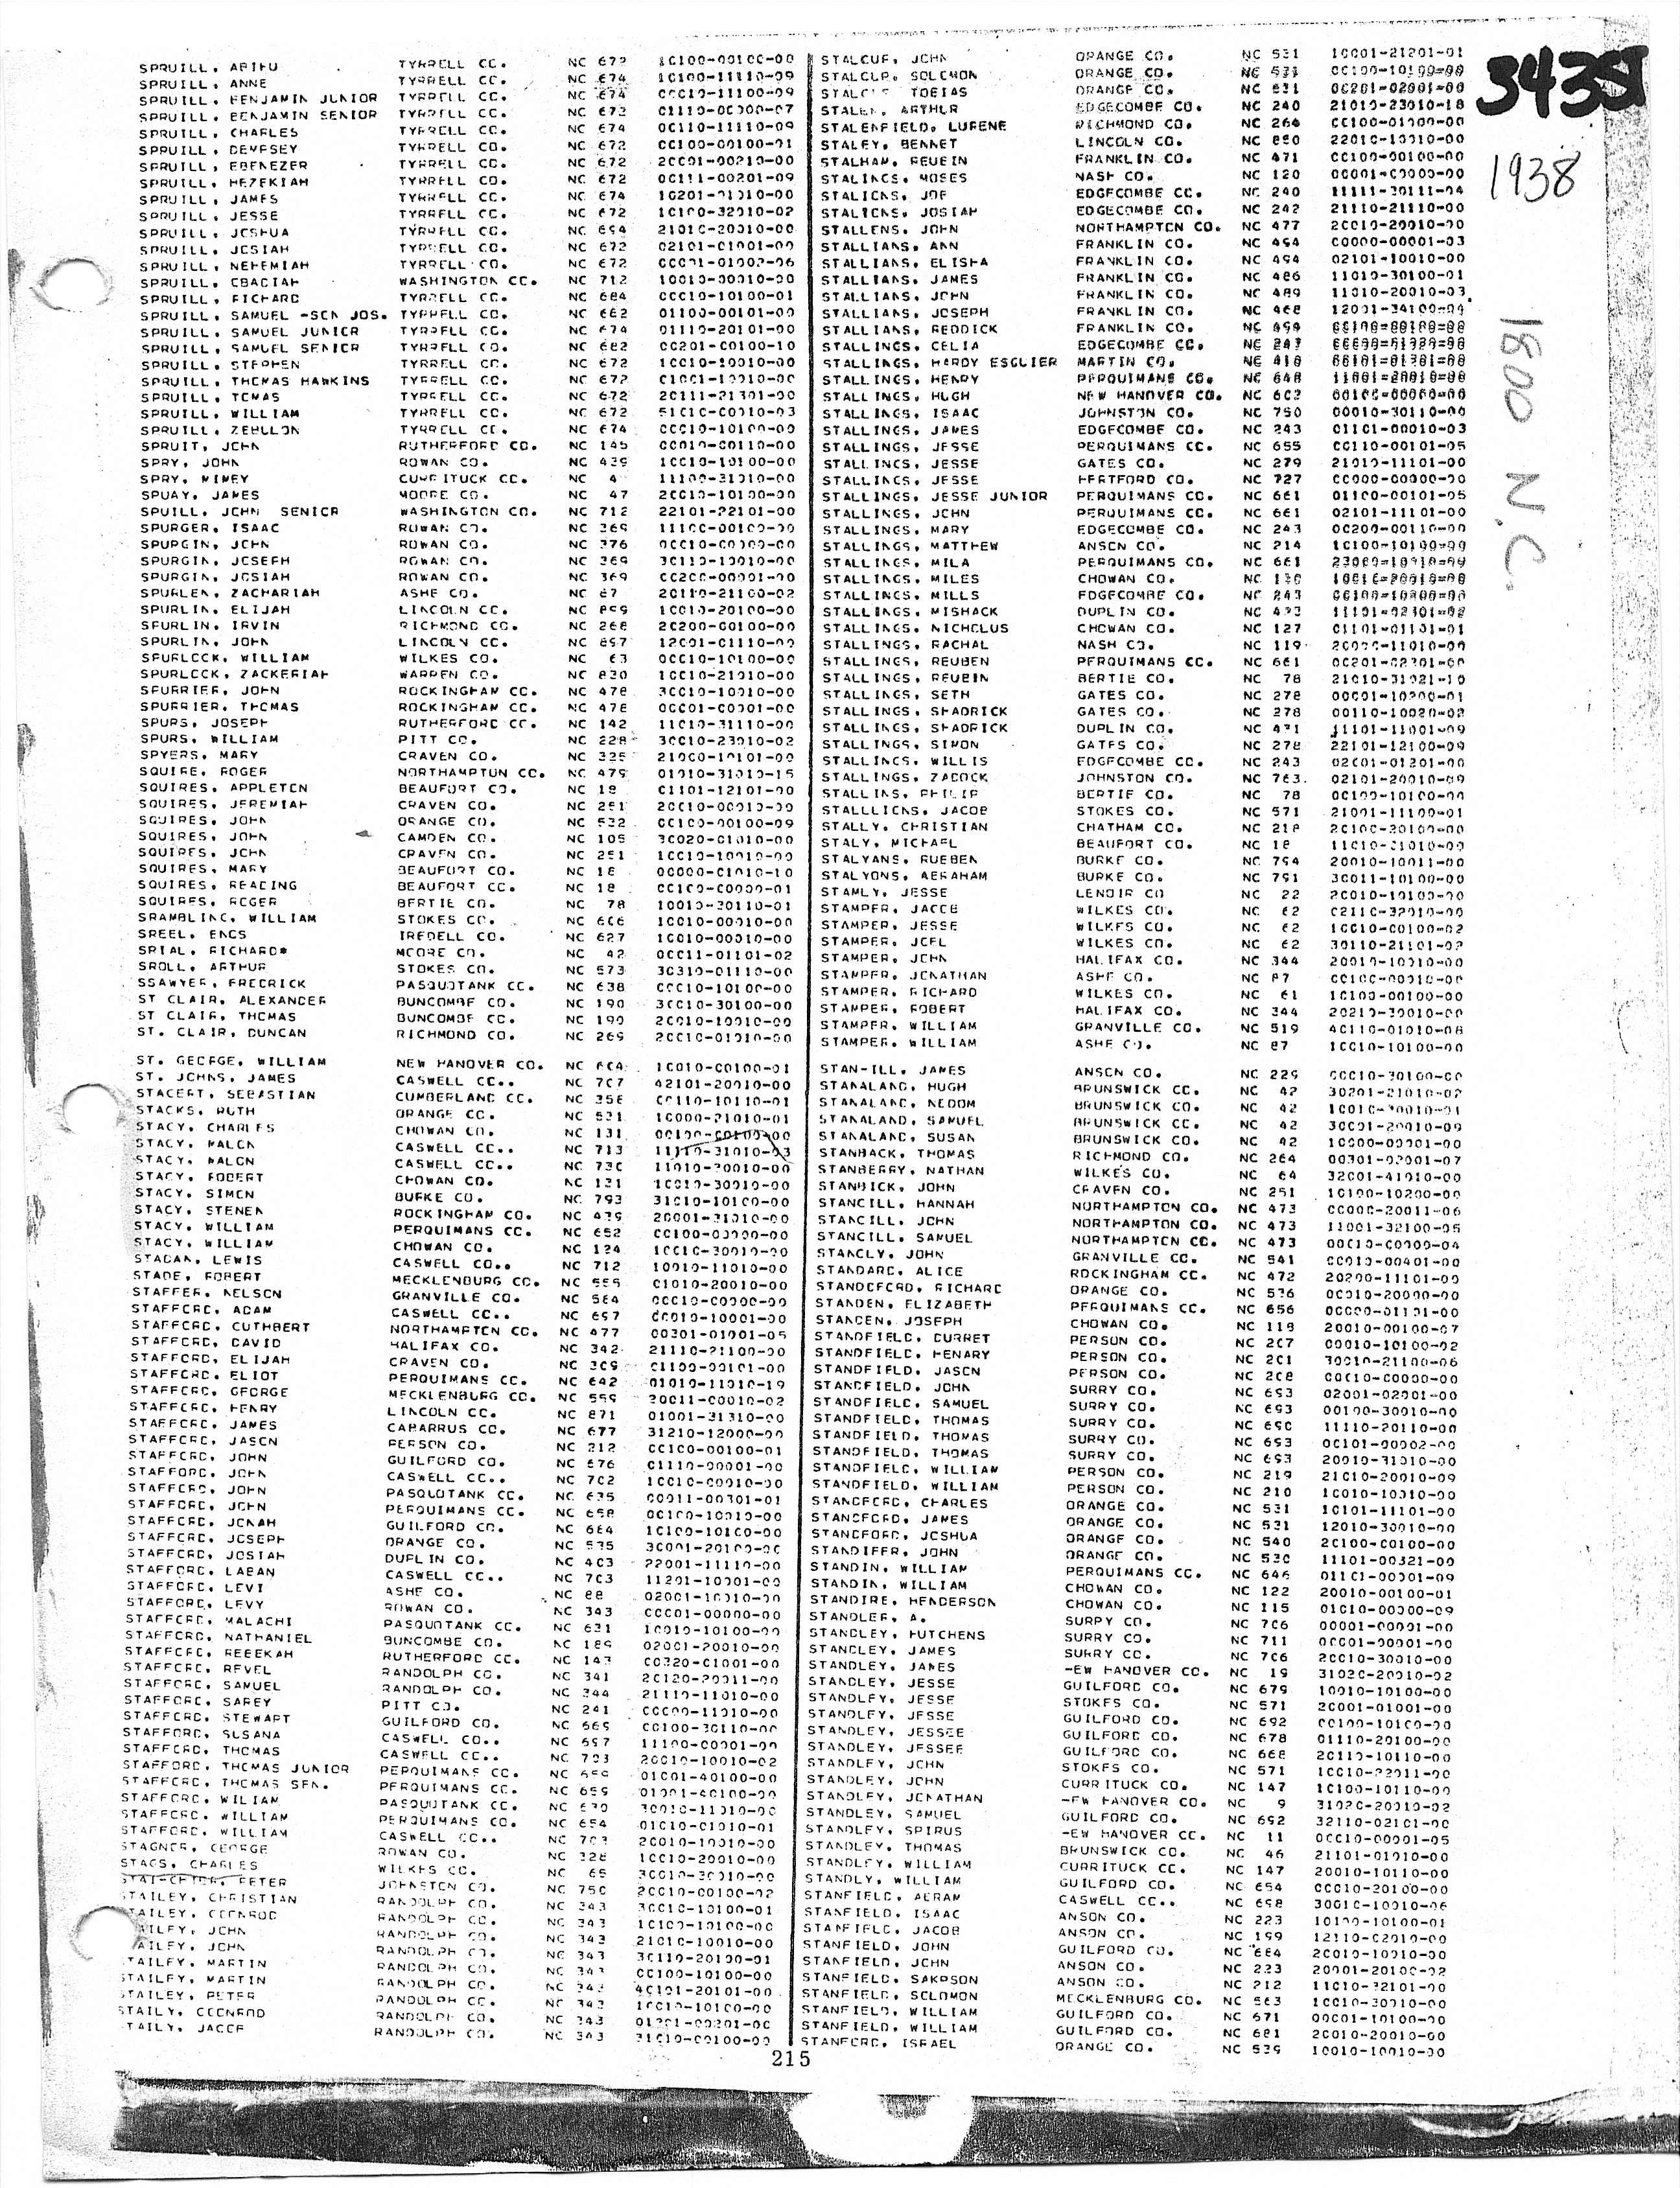 SPRUILL, TYRRELL CO. NC 672
SPRUILL, ANNE TYRRELL CO. NC 674 10100-11110-09
SPRUILL, BENJAMIN JUNIOR TYRRELL CO. NC 674 00010-11100-09
SPRUILL, BENJAMIN SENIOR TYRRELL CO. NC 672 01110-00000-07
SPRUILL, CHARLES TYRRELL CO. NC 674 00110-11110-09
SPRUILL, DEMPSEY TYRRELL CO. NC 672 00100-00100-01
SPRUILL, EBENEZER TYRRELL CO. NC 672 20001-00210-00
SPRUILL, HEZEKIAH TYRRELL CO. NC 672 00111-00201-09
SPRUILL, JAMES TYRRELL CO. NC 674 10201-01010-00
SPRUILL, JESSE TYRRELL CO. NC 672 10100-32010-02
SPRUILL, JOSHUA TYRRELL CO. NC 694 21010-20010-00
SPRUILL, JOSIAH TYRRELL CO. NC 672 02101-01001-00
SPRUILL, NEHEMIAH TYRRELL CO. NC 672 00001-01002-06
SPRUILL, OBADIAH WASHINGTON CO. NC 712 10010-00010-00
SPRUILL, RICHARD TYRRELL CO. NC 684 00010-10100-01
SPRUILL, SAMUEL -SON JOS. TYRRELL CO. NC 662 01100-00101-00
SPRUILL, SAMUEL JUNIOR TYRRELL CO. NC 674 01110-20101-00
SPRUILL, SAMUEL SENIOR TYRRELL CO. NC 682 00201-00100-10
SPRUILL, STEPHEN TYRRELL CO. NC 672 10010-10010-00
SPRUILL, THOMAS HAWKINS TYRRELL CO. NC 672 01001-10010-00
SPRUILL, TOMAS TYRRELL CO. NC 672 20111-21301-00
SPRUILL, WILLIAM TYRRELL CO. NC 672 51010-00010-03
SPRUILL, ZEBULON TYRRELL CO. NC 674 00010-10100-00
SPRUIT, JOHN RUTHERFORD CO. NC 145 00010-00110-00
SPRY, JOHN ROWAN CO. NC 439 10010-10100-00
SPRY, MIMEY CURRITUCK CO. NC 4 11100-31010-00
SPUAY, JAMES MOORE CO. NC 47 20010-10100-00
SPUILL, JOHN SENIOR WASHINGTON CO. NC 712 22101-22101-00
SPURGER, ISAAC ROWAN CO. NC 369 11100-00100-00
SPURGIN, JOHN ROWAN CO. NC 376 00010-00000-00
SPURGIN, JOSEPH ROWAN CO. NC 369 30110-10010-00
SPURGIN, JOSIAH ROWAN CO. NC 369 00200-00001-00
SPURLEN, ZACHARIAH ASHE CO. NC 87 20110-21100-02
SPURLIN, ELIJAH LINCOLN CO. NC 899 10010-20100-00
SPURLIN, IRVIN RICHMOND CO. NC 268 20200-00100-00
SPURLIN, JOHN LINCOLN CO. NC 897 12001-01110-00
SPURLOCK, WILLIAM WILKES CO. NC 63 00010-10100-00
SPURLOCK, ZACKERIAH WARREN CO. NC 830 10010-21010-00
SPURRIER, JOHN ROCKINGHAM CO. NC 478 30010-10010-00
SPURRIER, THOMAS ROCKINGHAM CO. NC 478 00001-00001-00
SPURS, JOSEPH RUTHERFORD CO. NC 142 11010-31110-00
SPURS, WILLIAM PITT CO. NC 228 30010-23010-02
SPYERS, MARY CRAVEN CO. NC 325 21000-10101-00
SQUIRE, ROGER NORTHAMPTON CO. NC 479 01010-31010-15
SQUIRES, APPLETON BEAUFORT CO. NC 18 01101-12101-00
SQUIRES, JEREMIAH CRAVEN CO. NC 251 20010-00010-00
SQUIRES, JOHN ORANGE CO. NC 532 00100-00100-09
SQUIRES, JOHN CAMDEN CO. NC 105 30020-01010-00
SQUIRES, JOHN CRAVEN CO. NC 251 10010-10010-00
SQUIRES, MARY BEAUFORT CO. NC 18 00000-01010-10
SQUIRES, READING BEAUFORT CO. NC 18 00100-00000-01
SQUIRES, ROGER BERTIE CO. NC 78 10010-30110-01
SRAMBLING, WILLIAM STOKES CO. NC 606 10010-00010-00
SREEL, ENOS IREDELL CO. NC 627 10010-00010-00
SRIAL, RICHARD* MOORE CO. NC 42 00011-01101-02
SROLL, ARTHUR STOKES CO. NC 573 30310-01110-00
SSAWYER, FREDRICK PASQUOTANK CO. NC 638 00010-10100-00
ST CLAIR, ALEXANDER BUNCOMBE CO. NC 190 30010-30100-00
ST CLAIR, THOMAS BUNCOMBE CO. NC 190 20010-10010-00
ST. CLAIR, DUNCAN RICHMOND CO. NC 269 20010-01010-00
ST. GEORGE, WILLIAM NEW HANOVER CO. NC 604 10010-00100-01
ST. JOHNS, JAMES CASWELL CO.. NC 707 42101-20010-00
STACERT, SEBASTIAN CUMBERLAND CO. NC 358 00110-10110-01
STACKS, RUTH ORANGE CO. NC 531 10000-21010-01
STACY, CHARLES CHOWAN CO. NC 131 00100-00100-00
STACY, MALON CASWELL CO.. NC 713 11110-31010-03
STACY, MALON CASWELL CO.. NC 730 11010-30010-00
STACY, ROBERT CHOWAN CO. NC 131 10010-30010-00
STACY, SIMON BURKE CO. NC 793 31010-10100-00
STACY, STENEN ROCKINGHAM CO. NC 439 20001-31010-00
STACY, WILLIAM PERQUIMANS CO. NC 652 00100-00000-00
STACY, WILLIAM CHOWAN CO. NC 124 10010-30010-00
STADAN, LEWIS CASWELL CO.. NC 712 10010-11010-00
STADE, ROBERT MECKLENBURG CO. NC 555 01010-20010-00
STAFFER, NELSON GRANVILLE CO. NC 584 00010-00000-00
STAFFORD, ADAM CASWELL CO.. NC 697 00010-10001-00
STAFFORD, CUTHBERT NORTHAMPTON CO. NC 477 00301-01001-05
STAFFORD, DAVID HALIFAX CO. NC 342 21110-21100-00
STAFFORD, ELIJAH CRAVEN CO. NC 309 01100-00101-00
STAFFORD, ELIOT PERQUIMANS CO. NC 642 01010-11010-19
STAFFORD, GEORGE MECKLENBURG CO. NC 559 20011-00010-02
STAFFORD, HENRY LINCOLN CO. NC 871 01001-31310-00
STAFFORD, JAMES CABARRUS CO. NC 677 31210-12000-00
STAFFORD, JASON PERSON CO. NC 212 00100-00100-01
STAFFORD, JOHN GUILFORD CO. NC 676 01110-00001-00
STAFFORD, JOHN CASWELL CO.. NC 702 10010-00010-00
STAFFORD, JOHN PASQUOTANK CO. NC 635 00011-00301-01
STAFFORD, JOHN PERQUIMANS CO. NC 658 00100-10010-00
STAFFORD, JONAH GUILFORD CO. NC 684 10100-10100-00
STAFFORD, JOSEPH ORANGE CO. NC 535 30001-20100-00
STAFFORD, JOSIAH DUPLIN CO. NC 403 22001-11110-00
STAFFORD, LABAN CASWELL CO.. NC 703 11201-10001-00
STAFFORD, LEVI ASHE CO. NC 88 02001-10010-00
STAFFORD, LEVY ROWAN CO. NC 343 00001-00000-00
STAFFORD, MALACHI PASQUOTANK CO. NC 631 10010-10100-00
STAFFORD, NATHANIEL BUNCOMBE CO. NC 189 02001-20010-00
STAFFORD, REBEKAH RUTHERFORD CO. NC 143 00320-01001-00
STAFFORD, REVEL RANDOLPH CO. NC 341 20120-20011-00
STAFFORD, SAMUEL RANDOLPH CO. NC 344 21110-11010-00
STAFFORD, SAREY PITT CO. NC 241 00000-11010-00
STAFFORD, STEWART GUILFORD CO. NC 669 00100-30110-00
STAFFORD, SUSANA CASWELL CO.. NC 697 11100-00001-00
STAFFORD, THOMAS CASWELL CO.. NC 703 20010-10010-02
STAFFORD, THOMAS JUNIOR PERQUIMANS CO. NC 659 01001-40100-00
STAFFORD, THOMAS SEN. PERQUIMANS CO. NC 659 01001-40100-00
STAFFORD, WILIAM PASQUOTANK CO. NC 630 30010-11010-00
STAFFORD, WILLIAM PERQUIMANS CO. NC 654 01010-01010-01
STAFFORD, WILLIAM CASWELL CO.. NC 703 20010-10010-00
STAGNER, GEORGE ROWAN CO. NC 328 10010-20010-00
STAGS, CHARLES WILKES CO. NC 65 30010-30010-00
PETER JOHNSTON CO. NC 750 20010-00100-02
STAILEY, CHRISTIAN RANDOLPH CO. NC 343 30010-10100-01
TAILEY, COONROD RANDOLPH CO. NC 343 10100-10100-00
AILEY, JOHN RANDOLPH CO. NC 343 21010-10010-00
AILEY, JOHN RANDOLPH CO. NC 343 30110-20100-01
TAILEY, MARTIN RANDOLPH CO. NC 343 00100-10100-00
TAILEY, MARTIN RANDOLPH CO. NC 343 40101-20101-00
STAILEY, PETER RANDOLPH CO. NC 343 10010-10100-00
STAILY, COONROD RANDOLPH CO. NC 343 01201-00201-00
TAILY, JACOB RANDOLPH CO. NC 343 31010-00100-00
STALCUP, JOHN ORANGE CO. NC 531 10001-21201-01
STALCUP, SOLOMON ORANGE CO. NC 531
TOBIAS ORANGE CO. NC 531 00201-02001-00
ARTHUR EDGECOMBE CO. NC 240 21010-23010-18
STALENFIELD, LURENE RICHMOND CO. NC 264 00100-01000-00
STALEY, BENNET LINCOLN CO. NC 890 22010-10010-00
STALHAM, REUBIN FRANKLIN CO. NC 471 00100-00100-00
STALINGS, MOSES NASH CO. NC 120 00001-00000-00
STALIONS, JOE EDGECOMBE CO. NC 240 11111-30111-04
STALIONS, JOSIAH EDGECOMBE CO. NC 242 21110-21110-00
STALLENS, JOHN NORTHAMPTON CO. NC 477 20010-20010-00
STALLIANS, ANN FRANKLIN CO. NC 494 00000-00001-03
STALLIANS, ELISHA FRANKLIN CO. NC 494 02101-10010-00
STALLIANS, JAMES FRANKLIN CO. NC 486 11010-30100-01
STALLIANS, JOHN FRANKLIN CO. NC 489 11010-20010-03
STALLIANS, JOSEPH FRANKLIN CO. NC 468 12001-34100-04
STALLIANS, REDDICK FRANKLIN CO. NC 494
STALLINGS, CELIA EDGECOMBE CO. NC 247
STALLINGS, HARDY ESQUIER MARTIN CO. NC 410
STALLINGS, HENRY PERQUIMANS CO. NC 648
STALLINGS, HUGH NEW HANOVER CO. NC 602
STALLINGS, ISAAC JOHNSTON CO. NC 750 00010-30110-00
STALLINGS, JAMES EDGECOMBE CO. NC 243 01101-00010-03
STALLINGS, JESSE PERQUIMANS CO. NC 655 00110-00101-05
STALLINGS, JESSE GATES CO. NC 279 21010-11101-00
STALLINGS, JESSE HERTFORD CO. NC 727 00000-00000-00
STALLINGS, JESSE JUNIOR PERQUIMANS CO. NC 661 01100-00101-05
STALLINGS, JOHN PERQUIMANS CO. NC 661 02101-11101-00
STALLINGS, MARY EDGECOMBE CO. NC 243 00200-00110-00
STALLINGS, MATTHEW ANSON CO. NC 214 10100-10100-00
STALLINGS, MILA PERQUIMANS CO. NC 661
STALLINGS, MILES CHOWAN CO. NC
STALLINGS, MILLS EDGECOMBE CO. NC 243
STALLINGS, MISHACK DUPLIN CO. NC 11101-02301-02
STALLINGS, NICHOLUS CHOWAN CO. NC 127 01101-01101-01
STALLINGS, RACHAL NASH CO. NC 119 20020-11010-00
STALLINGS, REUBEN PERQUIMANS CO. NC 661 00201-02301-00
STALLINGS, REUBIN BERTIE CO. NC 78 21010-31021-10
STALLINGS, SETH GATES CO. NC 278 00001-10200-01
STALLINGS, SHADRICK GATES CO. NC 278 00110-10020-02
STALLINGS, SHADRICK DUPLIN CO. NC 431 11101-11001-09
STALLINGS, SIMON GATES CO. NC 278 22101-12100-09
STALLINGS, WILLIS EDGECOMBE CO. NC 243 02001-01201-00
STALLINGS, ZADOCK JOHNSTON CO. NC 763 02101-20010-09
STALLINS, PHILIP BERTIE CO. NC 78 00100-10100-00
STALLLIONS, JACOB STOKES CO. NC 571 21001-11100-01
STALLY, CHRISTIAN CHATHAM CO. NC 218 20100-20100-00
STALY, MICHAEL BEAUFORT CO. NC 18 11010-21010-00
STALYANS, RUEBEN BURKE CO. NC 794 20010-10011-00
STALYONS, ABRAHAM BURKE CO. NC 791 30011-10100-00
STAMLY, JESSE LENOIR CO NC 22 20010-10100-00
STAMPER, JACOB WILKES CO. NC 62 02110-32010-00
STAMPER, JESSE WILKES CO. NC 62 10010-00100-02
STAMPER, JOEL WILKES CO. NC 62 30110-21101-02
STAMPER, JOHN HALIFAX CO. NC 344 20010-10010-00
STAMPER, JONATHAN ASHE CO. NC 87 00100-00010-00
STAMPER, RICHARD WILKES CO. NC 61 10100-00100-00
STAMPER, ROBERT HALIFAX CO. NC 344 20210-30010-00
STAMPER, WILLIAM GRANVILLE CO. NC 519 40110-01010-08
STAMPER, WILLIAM ASHE CO. NC 87 10010-10100-00
STAN-ILL, JAMES ANSON CO. NC 229 00010-30100-00
STANALAND, HUGH BRUNSWICK CO. NC 42 30201-21010-02
STANALAND, NEDOM BRUNSWICK CO. NC 42 10010-30010-01
STANALAND, SAMUEL BRUNSWICK CO. NC 42 30001-20010-09
STANALAND, SUSAN BRUNSWICK CO. NC 42 10000-00001-00
STANBACK, THOMAS RICHMOND CO. NC 264 00301-02001-07
STANBERRY, NATHAN WILKES CO. NC 64 32001-41010-00
STANBICK, JOHN CRAVEN CO. NC 251 10100-10200-00
STANCILL, HANNAH NORTHAMPTON CO. NC 473 00000-20011-06
STANCILL, JOHN NORTHAMPTON CO. NC 473 11001-32100-05
STANCILL, SAMUEL NORTHAMPTON CO. NC 473 00010-00000-04
STANCLY, JOHN GRANVILLE CO. NC 541 00010-00401-00
STANDARD, ALICE ROCKINGHAM CO. NC 472 20200-11101-00
STANDEFORD, RICHARD ORANGE CO. NC 536 00010-20000-00
STANDEN, ELIZABETH PERQUIMANS CO. NC 656 00000-01101-00
STANDEN, JOSEPH CHOWAN CO. NC 118 20010-00100-07
STANDFIELD, DURRET PERSON CO. NC 207 00010-10100-02
STANDFIELD, HENARY PERSON CO. NC 201 30010-21100-06
STANDFIELD, JASON PERSON CO. NC 208 00010-00000-00
STANDFIELD, JOHN SURRY CO. NC 693 02001-02001-00
STANDFIELD, SAMUEL SURRY CO. NC 693 00100-30010-00
STANDFIELD, THOMAS SURRY CO. NC 690 11110-20110-00
STANDFIELD, THOMAS SURRY CO. NC 693 00101-00002-00
STANDFIELD, THOMAS SURRY CO. NC 693 20010-31010-00
STANDFIELD, WILLIAM PERSON CO. NC 219 21010-20010-09
STANDFIELD, WILLIAM PERSON CO. NC 210 10010-10010-00
STANDFORD, CHARLES ORANGE CO. NC 531 10101-11101-00
STANDFORD, JAMES ORANGE CO. NC 531 12010-30010-00
STANDFORD, JOSHUA ORANGE CO. NC 540 20100-00100-00
STANDIFER, JOHN ORANGE CO. NC 530 11101-00321-00
STANDIN, WILLIAM PERQUIMANS CO. NC 646 01101-00001-09
STANDIN, WILLIAM CHOWAN CO. NC 122 20010-00100-01
STANDIRE, HENDERSON CHOWAN CO. NC 115 01010-00300-09
STANDLER, A. SURRY CO. NC 706 00001-00001-00
STANDLEY, HUTCHENS SURRY CO. NC 711 00001-00001-00
STANDLEY, JAMES SURRY CO. NC 706 20010-30010-00
STANDLEY, JAMES -EW HANOVER CO. NC 19 31020-20010-02
STANDLEY, JESSE GUILFORD CO. NC 679 10010-10100-00
STANDLEY, JESSE STOKES CO. NC 571 20001-01001-00
STANDLEY, JESSE GUILFORD CO. NC 692 00100-10100-00
STANDLEY, JESSEE GUILFORD CO. NC 678 01110-20100-00
STANDLEY, JESSEE GUILFORD CO. NC 668 20110-10110-00
STANDLEY, JOHN STOKES CO. NC 571 10010-22011-00
STANDLEY, JOHN CURRITUCK CO. NC 147 10100-10110-00
STANDLEY, JONATHAN -EW HANOVER CO. NC 9 31020-20010-02
STANDLEY, SAMUEL GUILFORD CO. NC 692 32110-02101-00
STANDLEY, SPIRUS -EW HANOVER CO. NC 11 00010-00001-05
STANDLEY, THOMAS BRUNSWICK CO. NC 46 21101-01010-00
STANDLEY, WILLIAM CURRITUCK CO. NC 147 20010-10110-00
STANDLY, WILLIAM GUILFORD CO. NC 654 00010-20100-00
STANFIELD, ABRAM CASWELL CO.. NC 698 30010-10010-06
STANFIELD, ISAAC ANSON CO. NC 223 10100-10100-01
STANFIELD, JACOB ANSON CO. NC 199 12110-02010-00
STANFIELD, JOHN GUILFORD CO. NC 684 20010-10010-00
STANFIELD, JOHN ANSON CO. NC 223 20001-20100-02
STANFIELD, SAMPSON ANSON CO. NC 212 11010-32101-00
STANFIELD, SOLOMON MECKLENBURG CO. NC 563 10010-30010-00
STANFIELD, WILLIAM GUILFORD CO. NC 671 00001-10100-00
STANFIELD, WILLIAM GUILFORD CO. NC 681 20010-20010-00
STANFORD, ISRAEL ORANGE CO. NC 539 10010-10010-00
215
1938
1800 N.C.